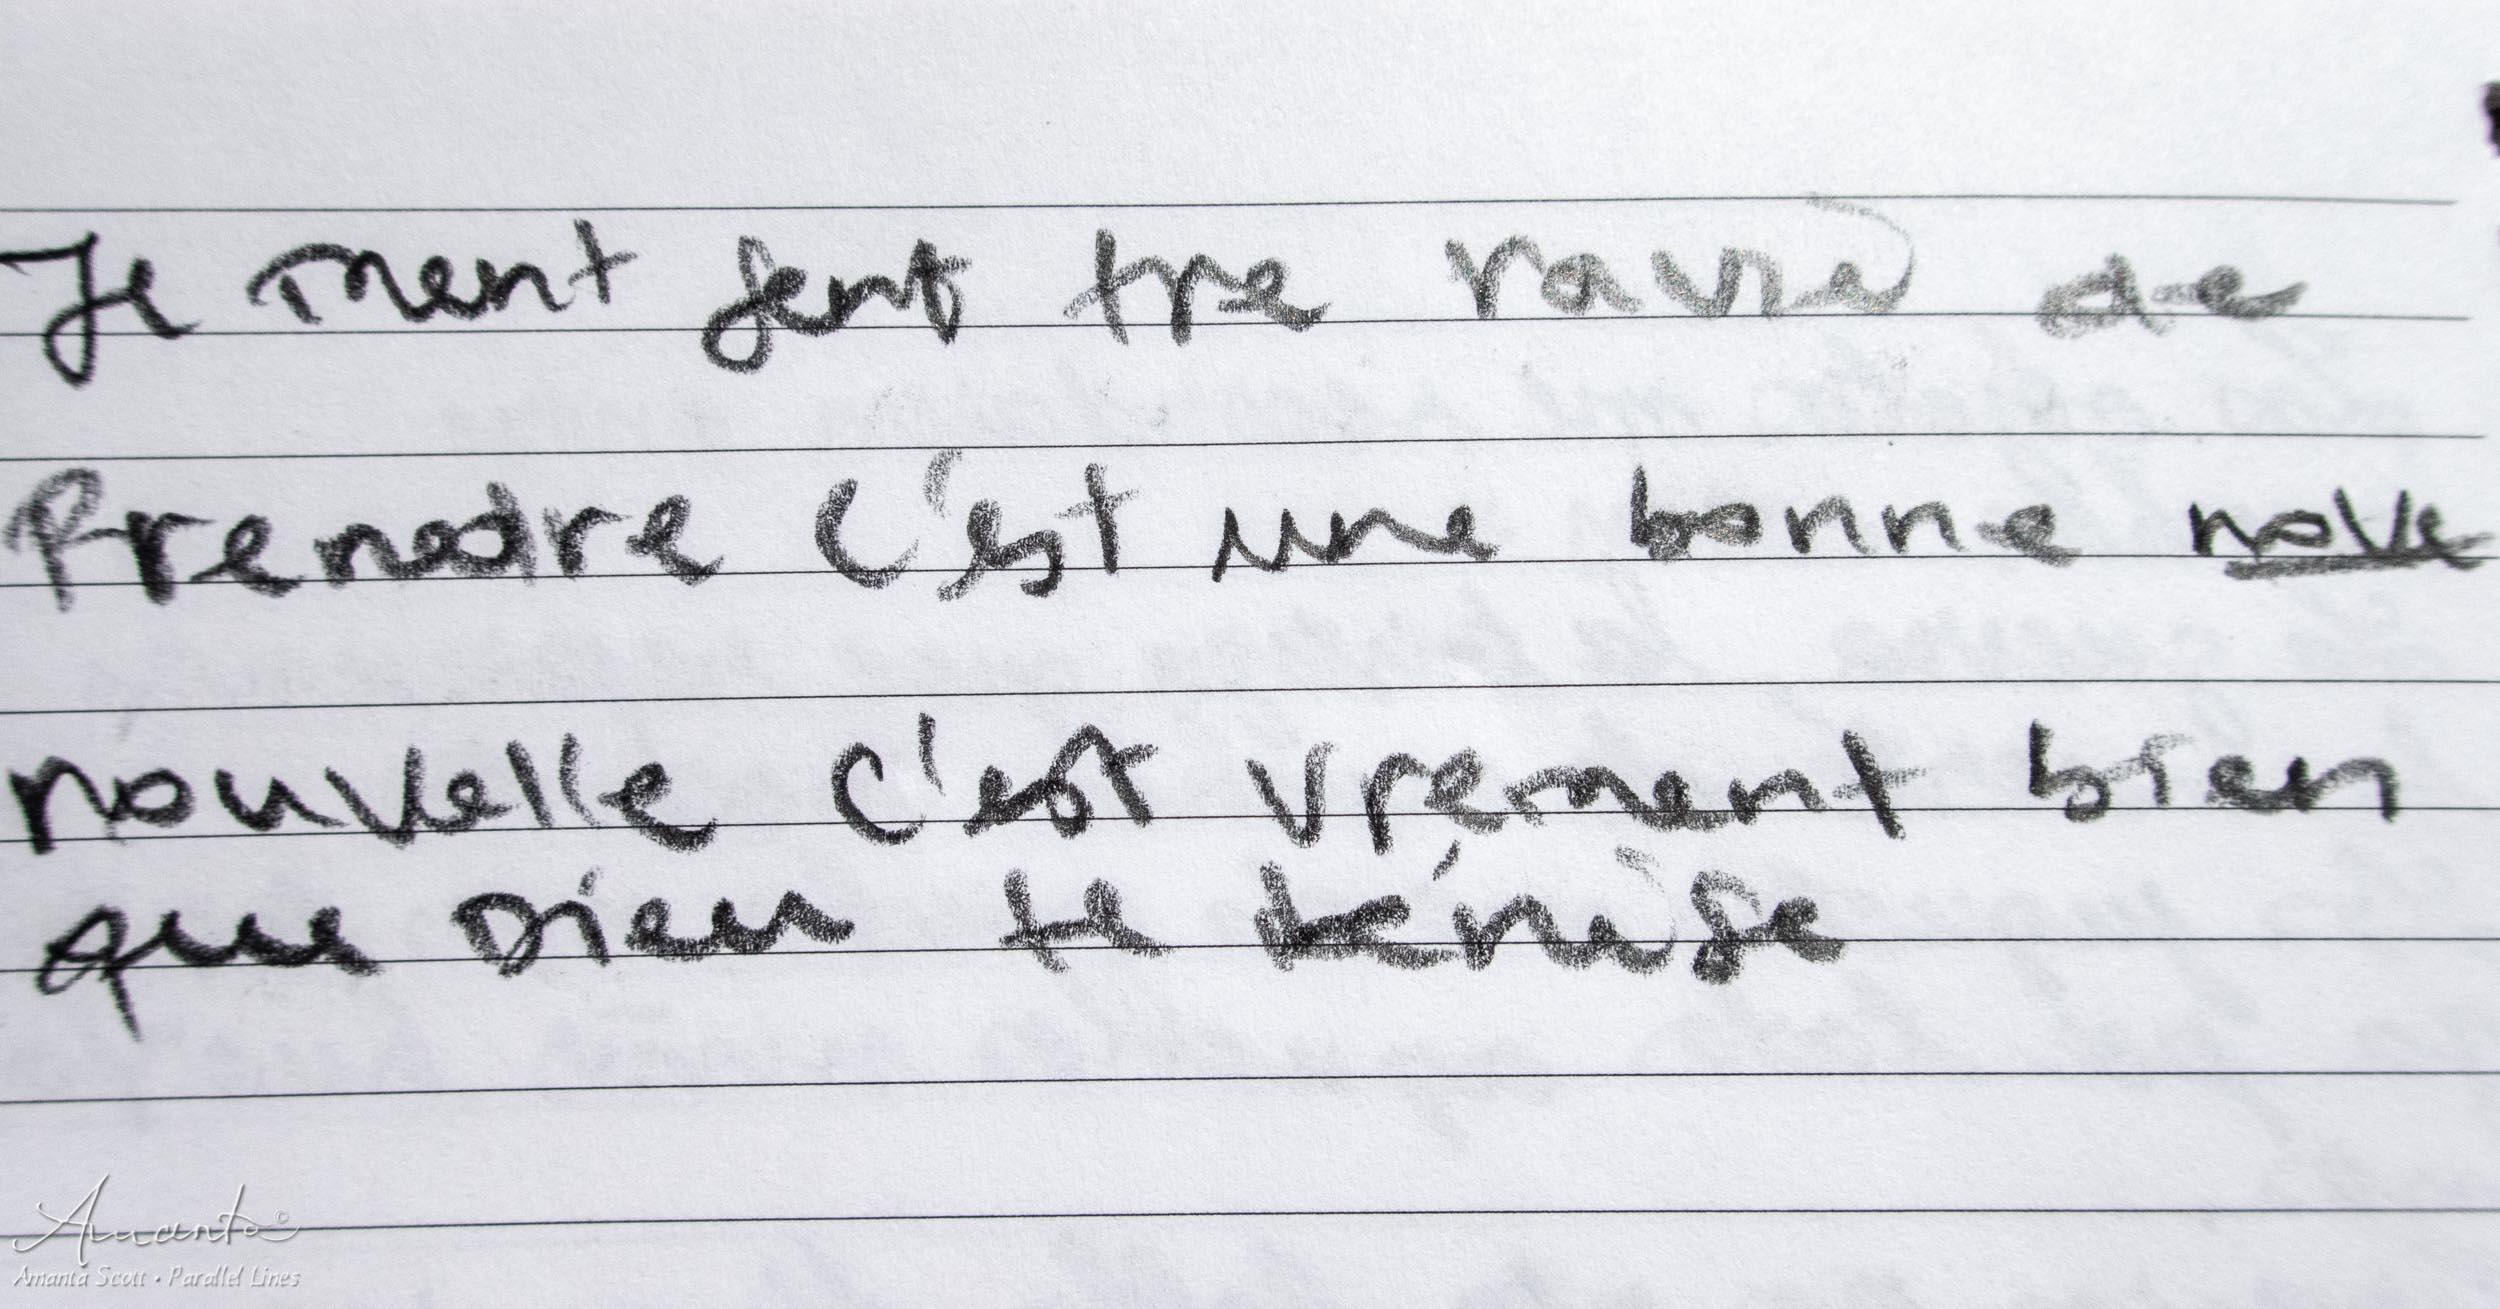 Je ment sent tre ravie de
Prenedre c'est une bonne nove
nouvelle c'est vrement bien
que Dieu te bénise
Amanta ©
Amanta Scott • Parallel Lines